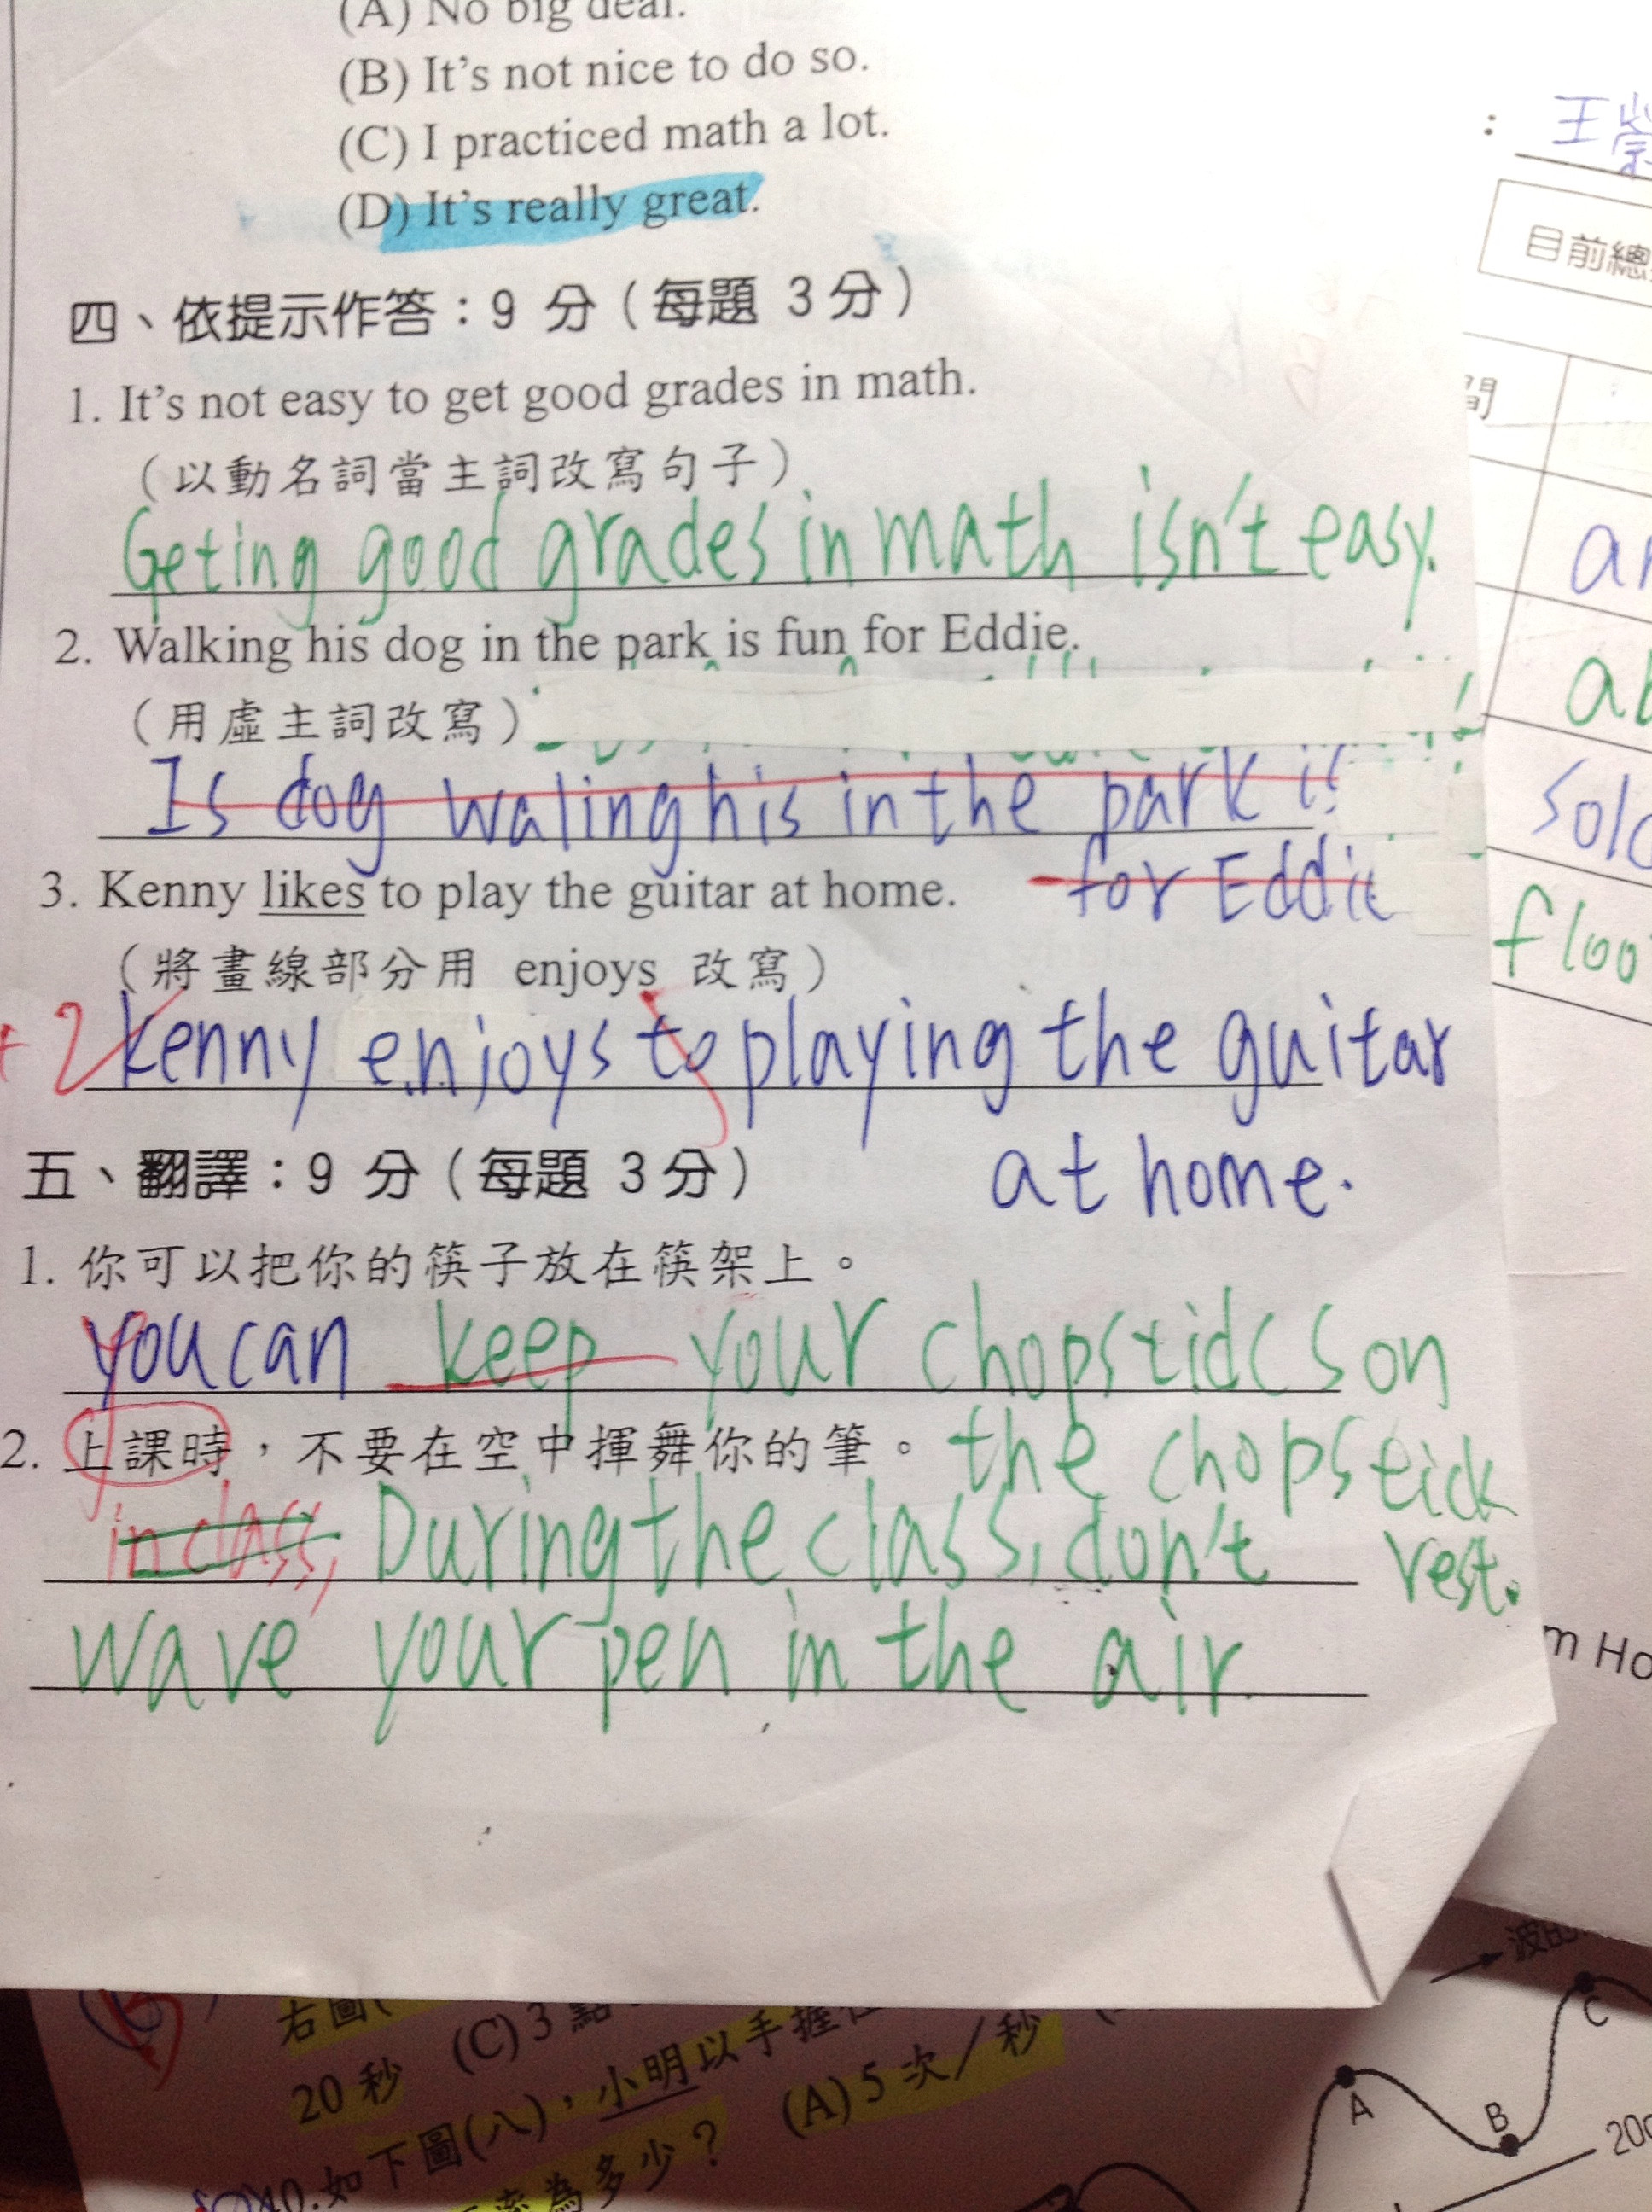 (A) No big deal.
(B) It's not nice to do so.
(C) I practiced math a lot.
(D) It's really great.
四、依提示作答：9 分（每題 3 分）
1. It's not easy to get good grades in math.
（以動名詞當主詞改寫句子）
Geting good grades in math isn't easy.
2. Walking his dog in the park is fun for Eddie.
（用虛主詞改寫）
Is dog waling his in the park is
for Eddie
3. Kenny likes to play the guitar at home.
（將畫線部分用 enjoys 改寫）
+2 Kenny enjoys to playing the guitar
at home.
五、翻譯：9 分（每題 3 分）
1. 你可以把你的筷子放在筷架上。
you can keep your chopsticks on
the chopstick
rest.
2. 上課時，不要在空中揮舞你的筆。
in class, During the class, don't
wave your pen in the air.
: 王
目前總
間
a
sol
floo
m Ho
右圖(
20 秒 (C) 3 點
10.如下圖(八)，小明以手握住
(A) 5 次／秒
為多少？
波的
A
B
C
20